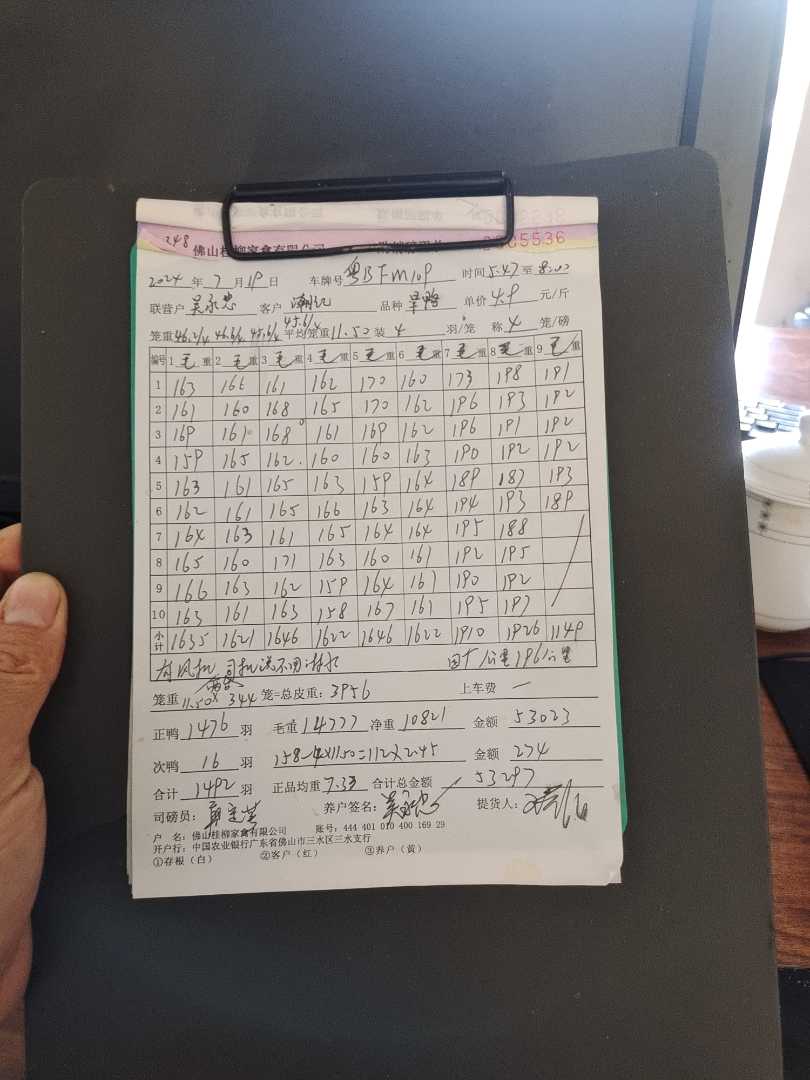 248 佛山桂柳家禽有限公司 2065536
2024 年 7 月 19 日 车牌号 粤BFM109 时间 5:47 至 8:00
联营户 吴永忠 客户 潮记 品种 旱鸭 单价 4.9 元/斤
45.6/4
笼重 46.2/4 46.6/4 45.6/4 平均笼重 11.50 装 4 羽/笼 称 4 笼/磅
编号 1 毛 重 2 毛 重 3 毛 重 4 毛 重 5 毛 重 6 毛 重 7 毛 重 8 毛 重 9 毛 重
1 163 166 161 162 170 160 173 198 191
2 161 160 168 165 170 162 196 193 192
3 169 161 168 161 169 162 196 191 192
4 159 165 162 160 160 163 190 192 192
5 163 161 165 163 159 164 189 187 193
6 162 161 165 166 163 164 194 193 189
7 164 163 161 165 164 164 195 188
8 165 160 171 163 160 161 192 195
9 166 163 162 159 164 161 190 192
10 163 161 163 158 167 161 195 197
小计 1635 1621 1646 1622 1646 1622 1910 1926 1149
有风机 司机说不用淋水 公里 196公里
笼重 11.50× 344 笼=总皮重: 3956 上车费 —
正鸭 1476 羽 毛重 14777 净重 10821 金额 53023
次鸭 16 羽 158-4×11.50=112×2.45 金额 274
合计 1492 羽 正品均重 7.33 合计总金额 53297
司磅员: 养户签名: 吴永忠 提货人:
户 名: 佛山桂柳家禽有限公司 账号: 444 401 010 400 169 29
开户行: 中国农业银行广东省佛山市三水区三水支行
①存根（白） ②客户（红） ③养户（黄）